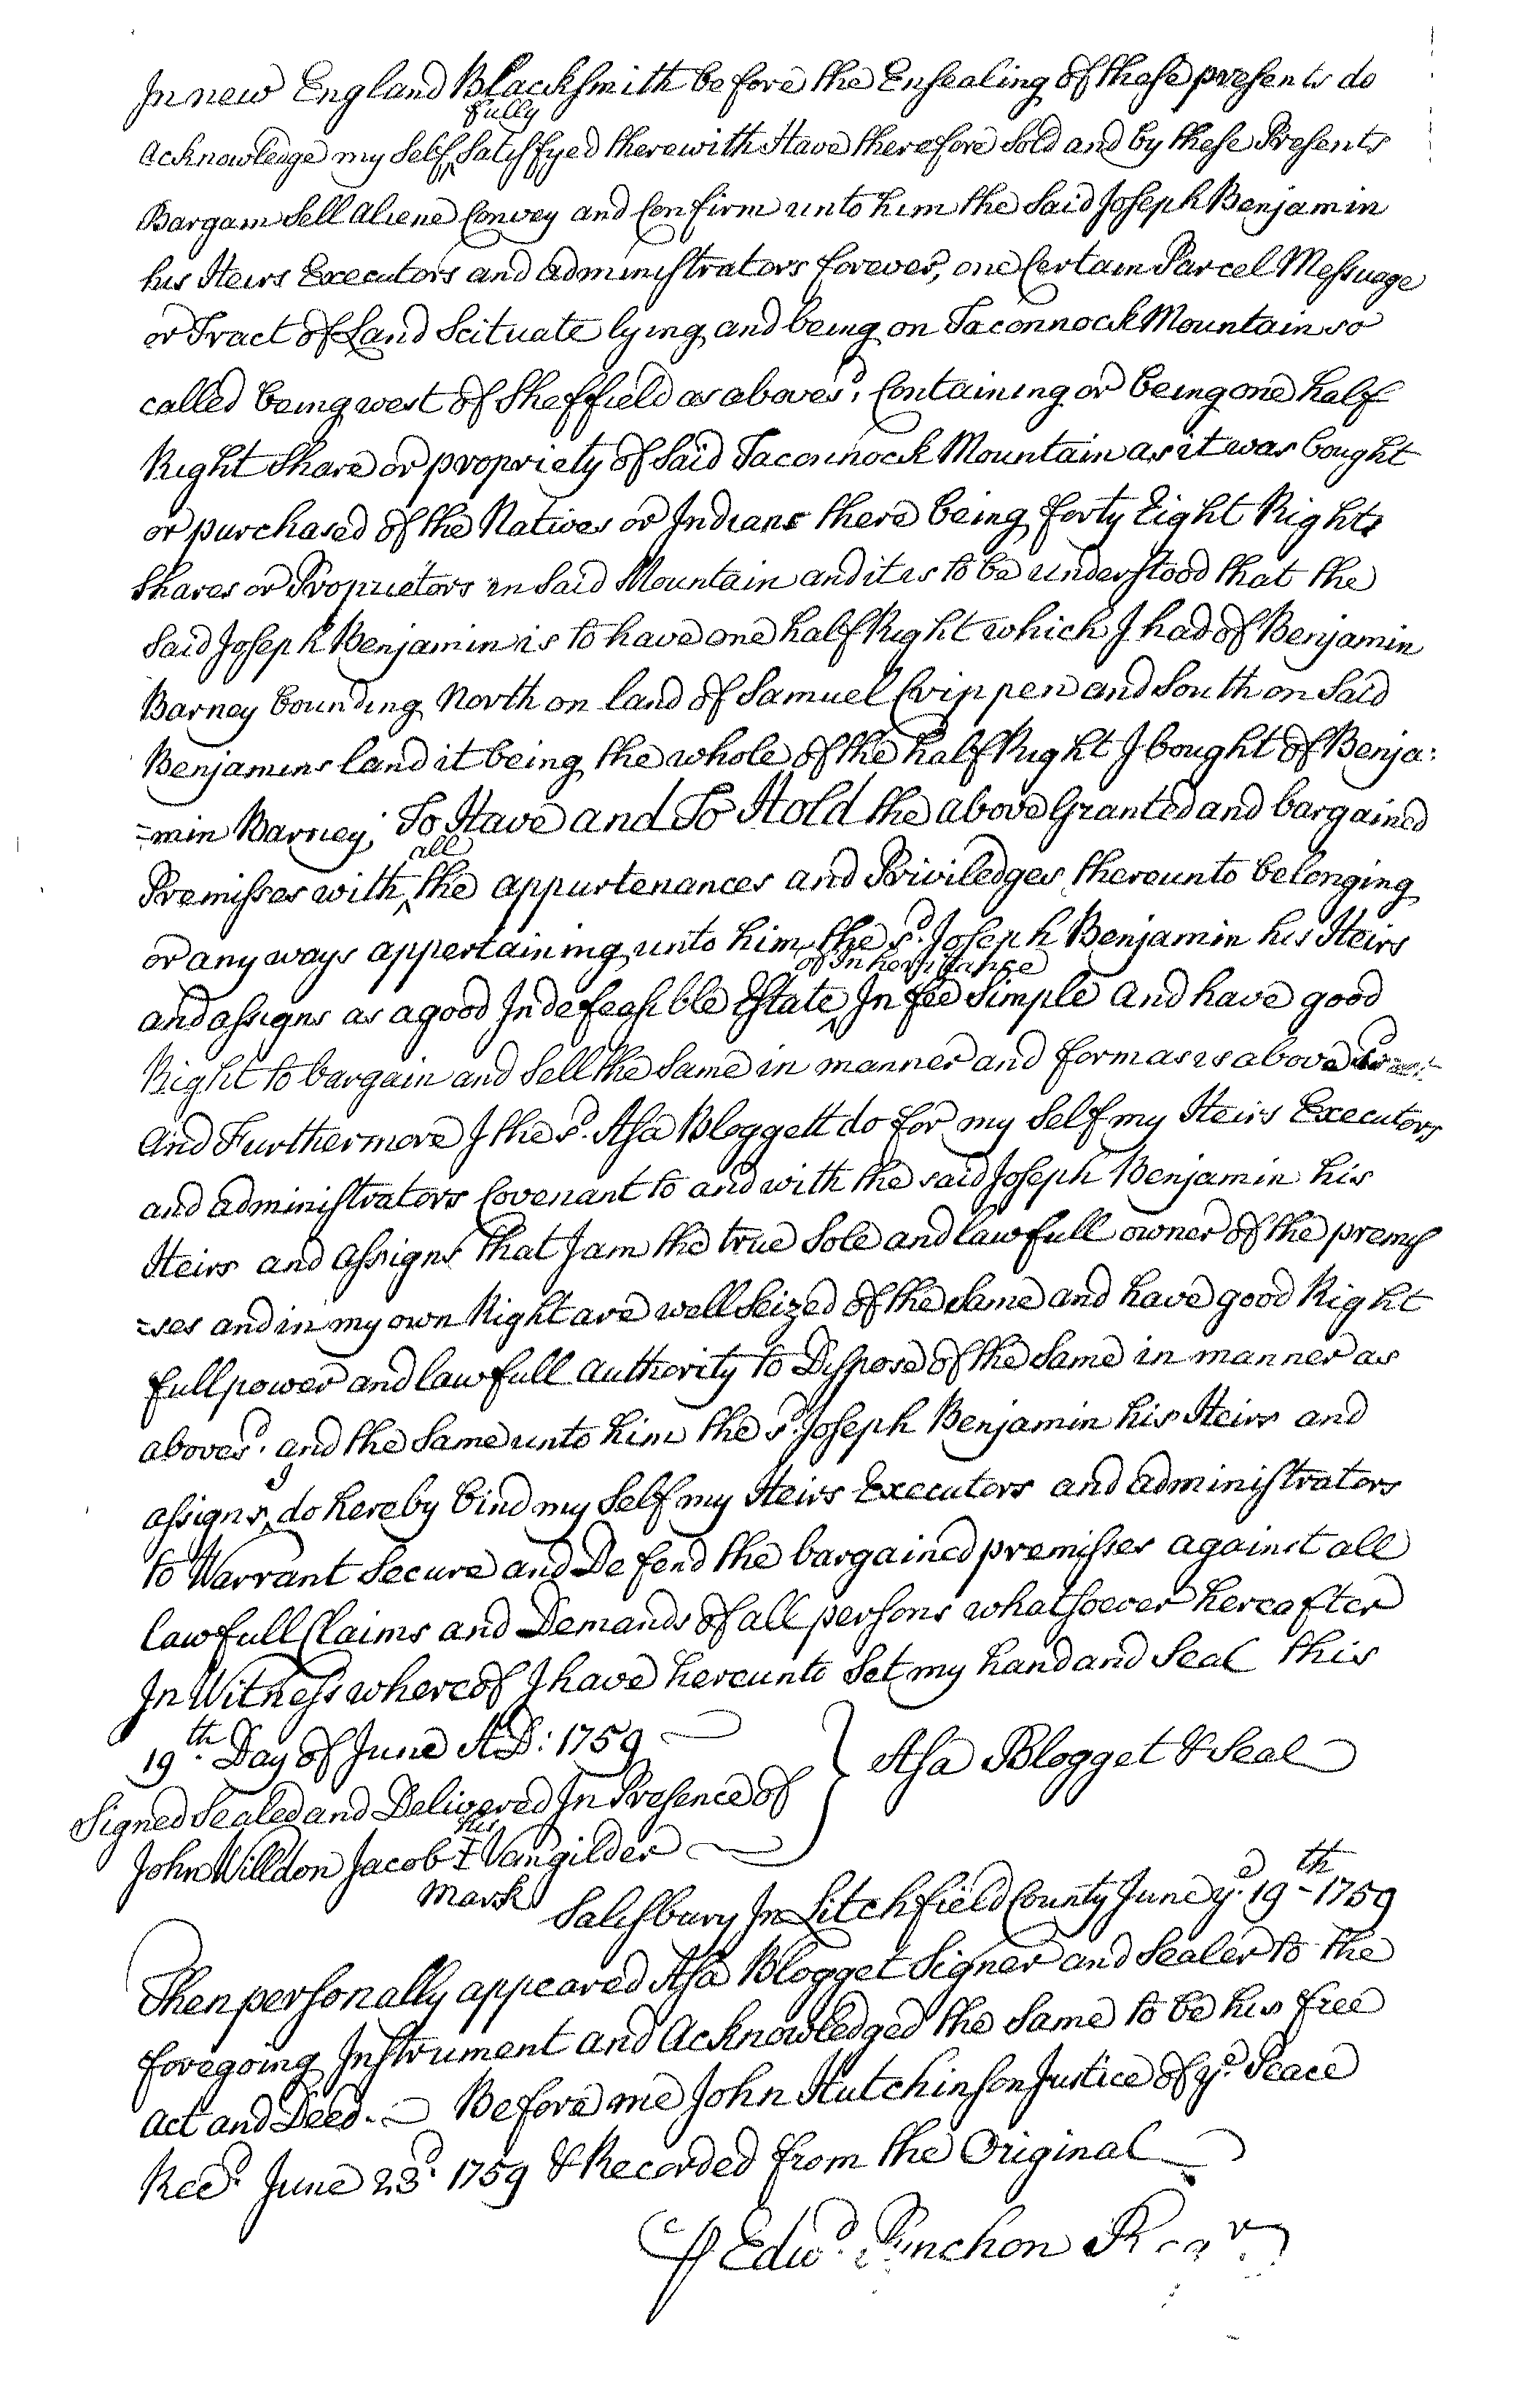 In new England Blacksmith before the Ensealing of these presents do
fully
acknowledge my self satisfyed therewith Have therefore Sold and by these Presents
Bargain Sell aliene Convey and Confirm unto him the Said Joseph Benjamin
his Heirs Executors and administrators forever, one Certain Parcel Messuage
or Tract of Land Scituate lying and being on Taconnock Mountain so
called being west of Sheffield as aboves.d Containing or being one half
Right Share or propriety of Said Taconnock Mountain as it was bought
or purchased of the Natives or Indians there being forty Eight Rights
Shares or Proprietors in Said Mountain and it is to be understood that the
Said Joseph Benjamin is to have one half Right which I had of Benjamin
Barney bounding North on land of Samuel Crippen and South on Said
Benjamins land it being the whole of the half Right I bought of Benja:
=min Barney; To Have and To Hold the above Granted and bargained
all
Premisses with ^ the appurtenances and Priviledges thereunto belonging
or any ways appertaining unto him the s.d Joseph Benjamin his Heirs
of Inheritance
and assigns as a good Indefeasible Estate ^ In fee Simple And have good
Right to bargain and Sell the Same in manner and form as is above s.d
And Furthermore I the s.d Asa Bloggett do for my Self my Heirs Executors
and administrators Covenant to and with the said Joseph Benjamin his
Heirs and assigns that I am the true Sole and lawfull owner of the premis
=ses and in my own Right are well Seized of the Same and have good Right
full power and lawfull authority to Dispose of the Same in manner as
aboves.d and the Same unto him the s.d Joseph Benjamin his Heirs and
assigns ^ do hereby bind my Self my Heirs Executors and administrators
to Warrant Secure and Defend the bargained premisses against all
lawfull Claims and Demands of all persons whatsoever hereafter
In Witness whereof I have hereunto Set my hand and Seal this
19th Day of June A.D: 1759
Asa Blogget & Seal
Signed Sealed and Delivered In Presence of
his
John Willdon Jacob I Vangilder
mark
Salisbury In Litchfield County June ye. 19th 1759
Then personally appeared Asa Blogget Signer and Sealer to the
foregoing Instrument and Acknowledged the Same to be his free
act and Deed. Before me John Hutchinson Justice of ye. Peace
Rec.d June 23.d 1759 & Recorded from the Original
⅌ Edw.d Pynchon Reg.r